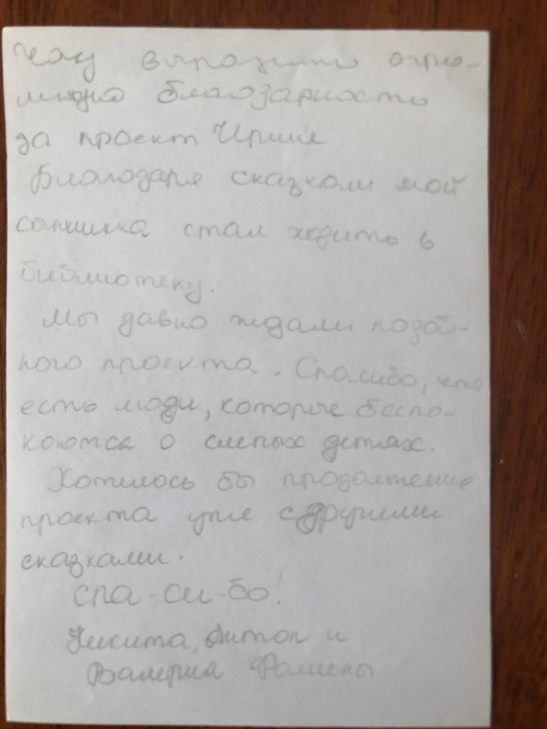 Хочу выразить огро-
мную благодарность
за проект Ирине
Благодаря сказкам мой
сынишка стал ходить в
библиотеку.
Мы давно ждали подоб-
ного проекта. Спасибо, что
есть люди, которые беспо-
коются о слепых детях.
Хотелось бы продолжение
проекта уже с другими
сказками.
Спа-си-бо!
Никита, Антон и
Валерия Фомины